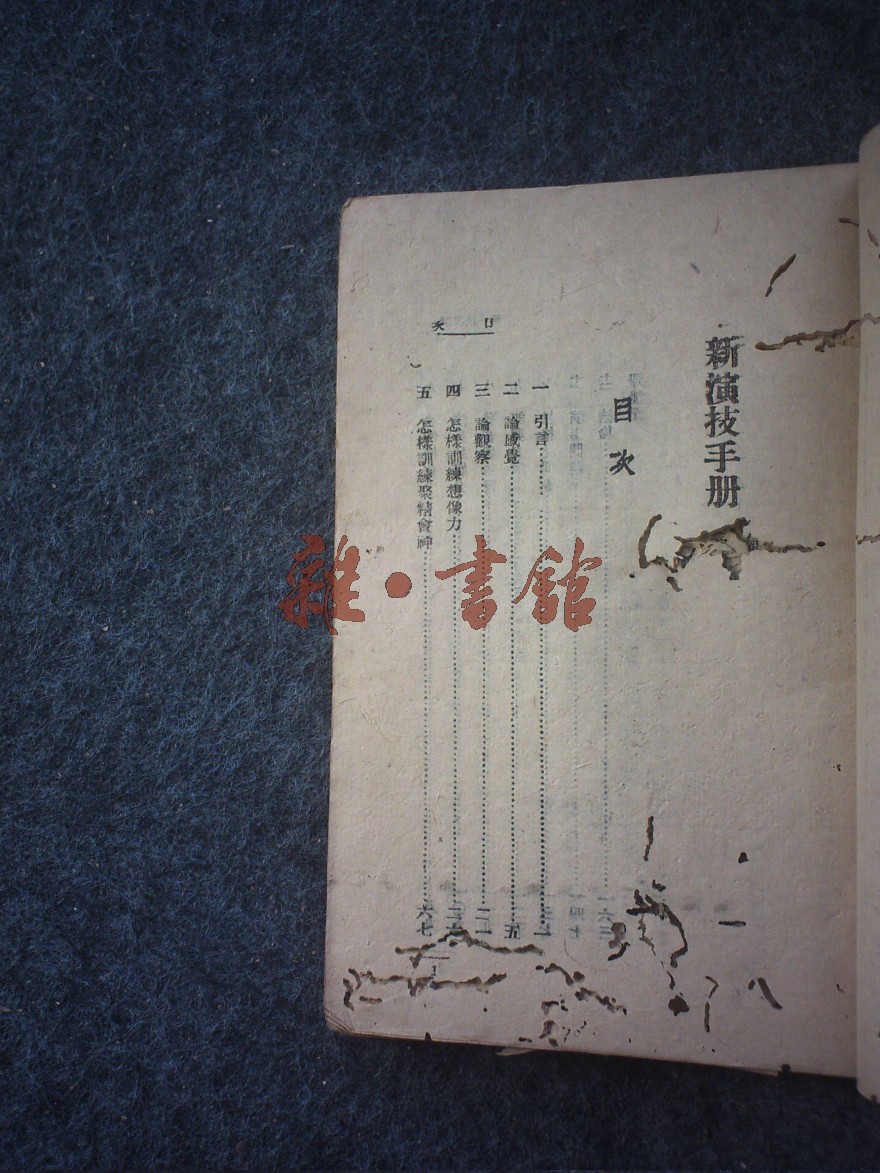 新演技手册
目次
一 引言
二 論感覺 五
三 論觀察 二一
四 怎樣訓練想像力
五 怎樣訓練聚精會神 六七
目次
雜·書館